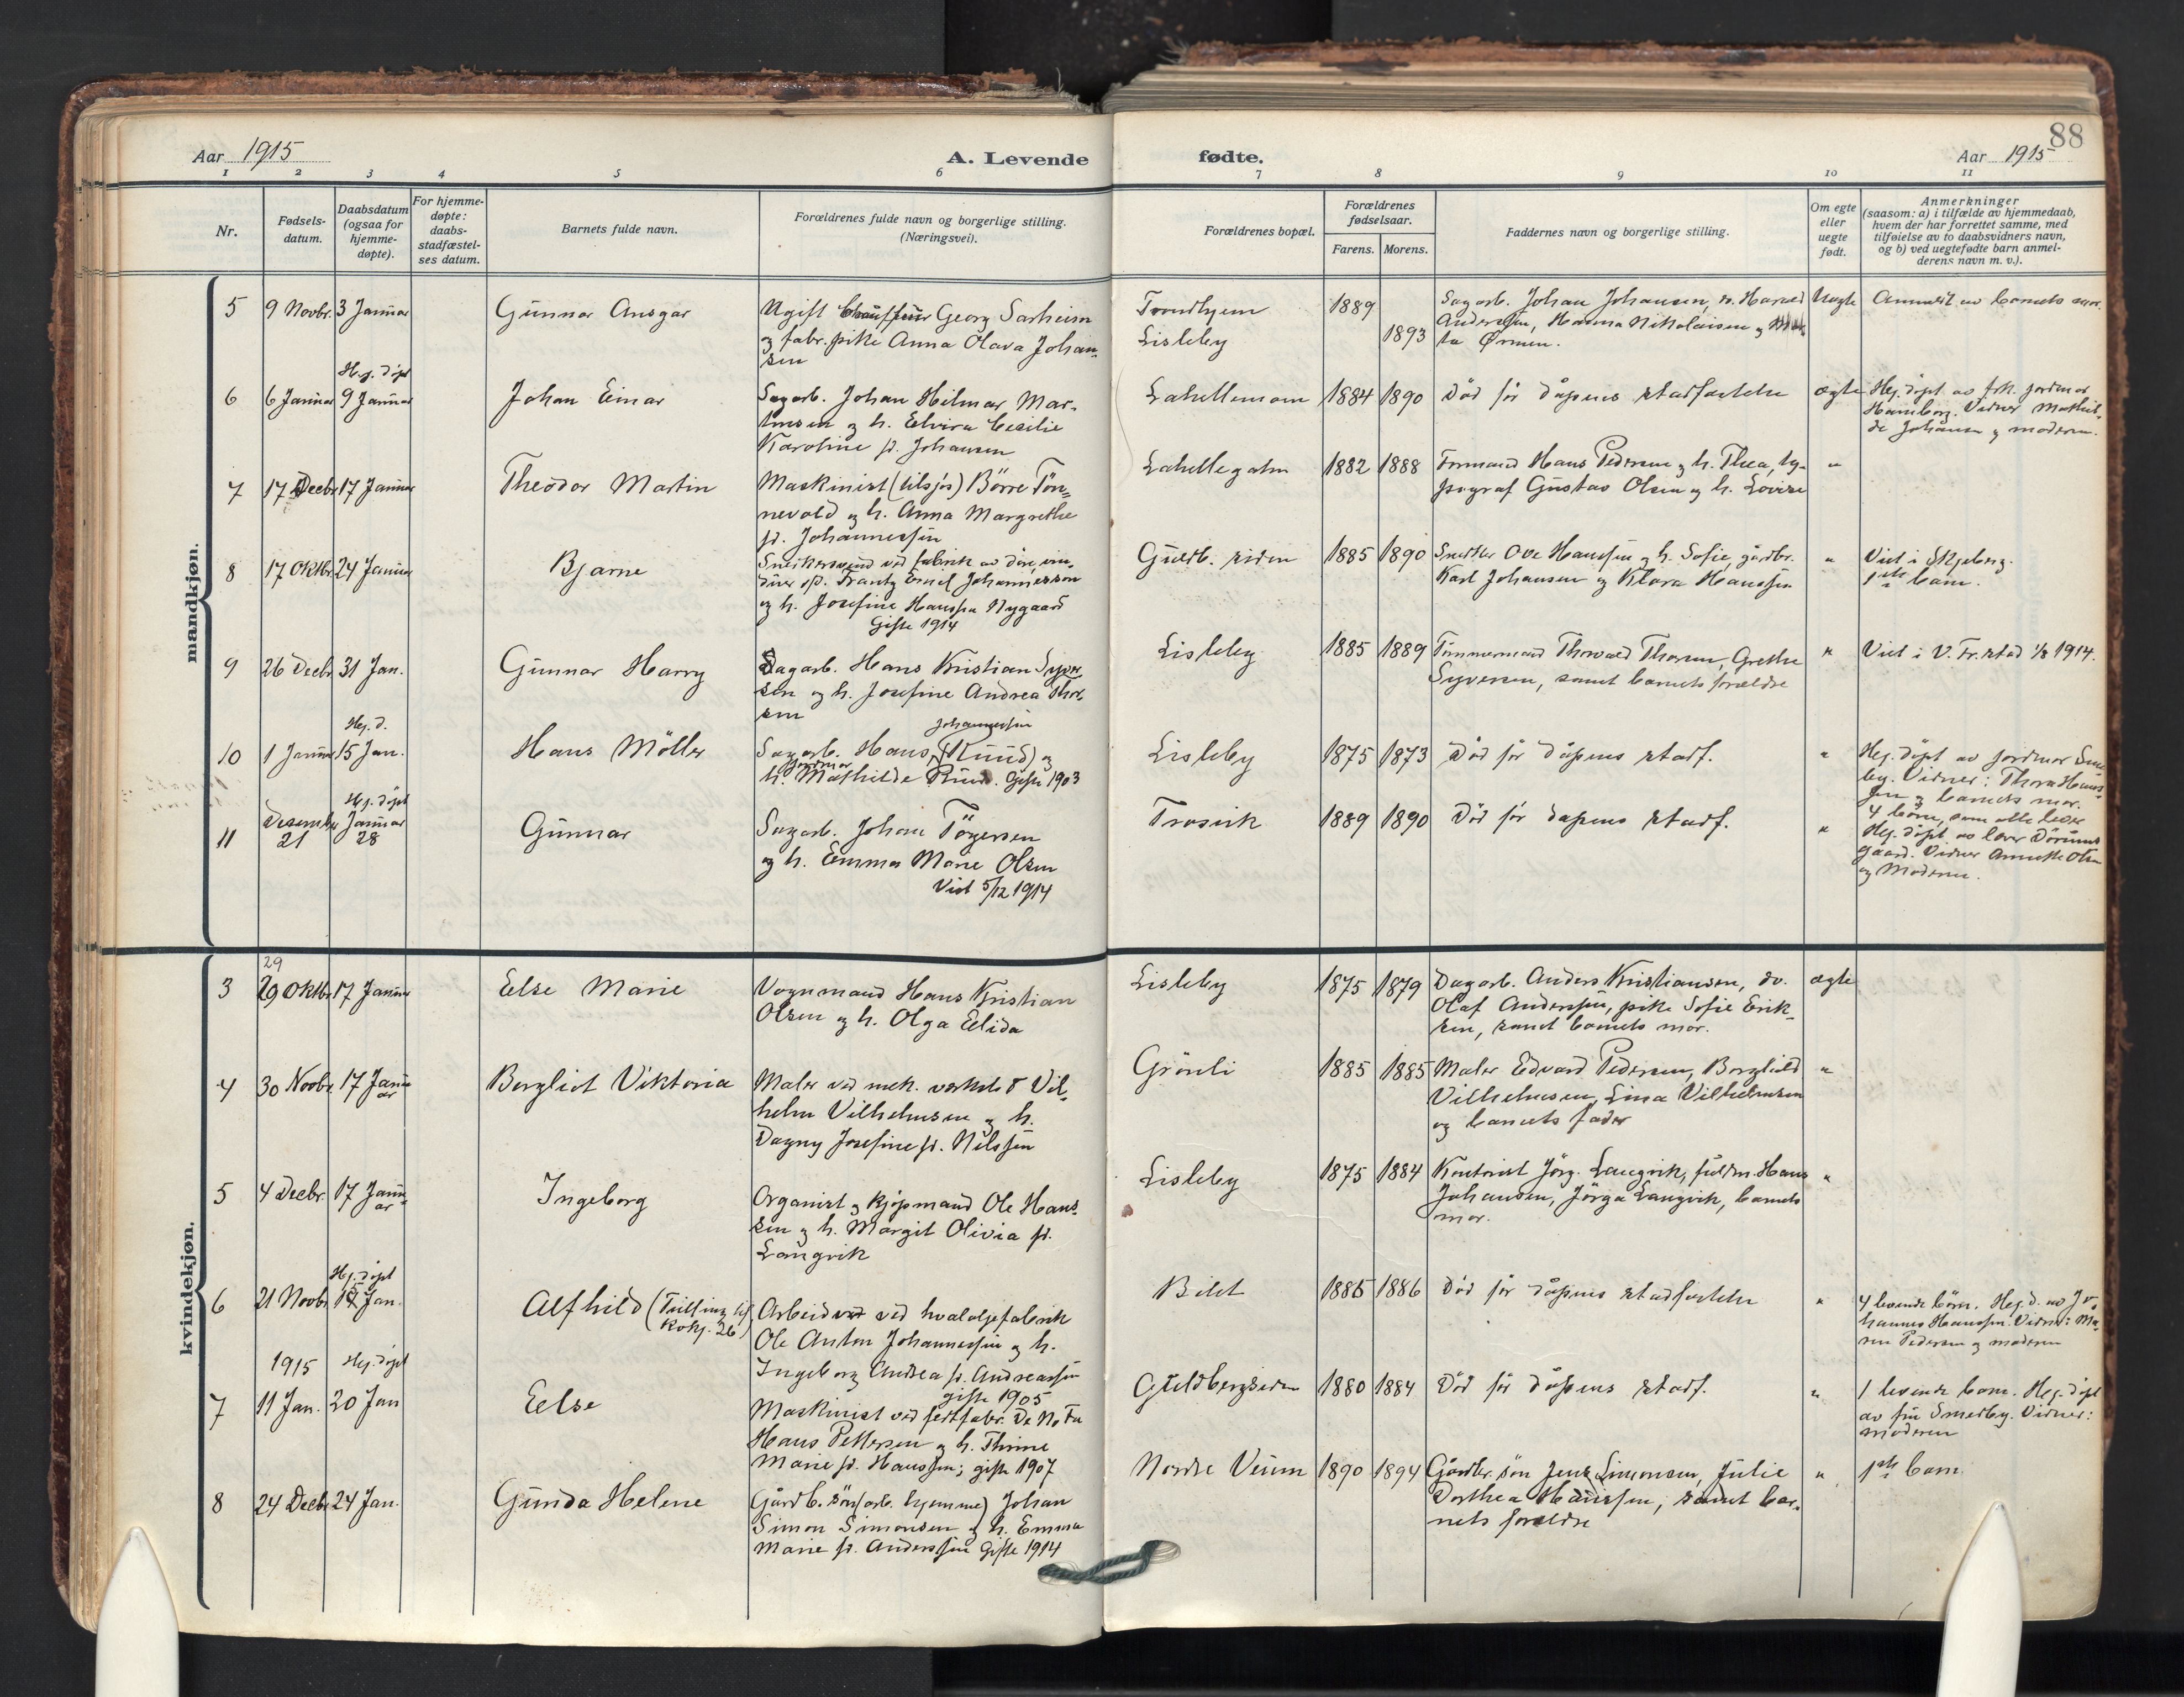 Aar 1915
A. Levende
fødte.
88
Aar 1915
1 2 3 4 5 6
7 8 9 10 11
Nr.
Fødsels-
datum.
Daabsdatum
(ogsaa for
hjemme-
døpte).
For hjemme-
døpte:
daabs-
stadfæstel-
ses datum.
Barnets fulde navn.
Forældrenes fulde navn og borgerlige stilling.
(Næringsvei).
Forældrenes bopæl.
Forældrenes
fødselsaar.
Farens. Morens.
Faddernes navn og borgerlige stilling.
Om egte
eller
uegte
født.
Anmerkninger
(saasom: a) i tilfælde av hjemmedaab,
hvem der har forrettet samme, med
tilføielse av to daabsvidners navn,
og b) ved uegtefødte barn anmel-
derens navn m. v.).
mandkjøn.
5
9 Novbr.
3 Januar
Gunnar Ansgar
Ugift Chauffeur Georg Sarheim
og fabr.pike Anna Olava Johan-
sen
Trondhjem
Lisleby
1889
1893
Sagarb. Johan Johansen, Harald
Andersen, Hanna Nikolaisen og
ta Ørmen.
Uegte
Anmeldt av barnets mor.
6
6 Januar
Hj. døpt
9 Januar
Johan Einar
Sagarb. Johan Hilmar Mar-
tinsen og h. Elvira Cecilie
Karoline f. Johansen
Lahellemoen
1884
1890
Død før dåpens stadfæstelse
ægte
Hj. døpt av frk. jordmor
Hamborg. Vidner Mathil-
de Johansen og moderen.
7
17 Decbr.
17 Januar
Theodor Martin
Maskinist (tilsjøs) Børre Tøn-
nevold og h. Anna Margrethe
f. Johannessen
Lahellegaten
1882
1888
Formand Hans Pedersen og h. Thea, ty-
pograf Gustav Olsen og h. Lovise
"
8
17 Oktbr.
24 Januar
Bjarne
Snekkersvend ved fabrik av døre, vin-
duer osv. Frantz Emil Johannessen
og h. Josefine Hanssen Nygaard
Gifte 1914
Guldb. siden
1885
1890
Snedker Ove Hanssen og h. Sofie, gårdbr.
Karl Johansen og Klara Hanssen
"
Viet i Skjeberg.
1ste barn.
9
26 Decbr.
31 Jan.
Gunnar Harry
Dagarb. Hans Kristian Syver
sen og h. Josefine Andrea Thor-
sen
Lisleby
1885
1889
Tømmermand Thorvald Thorsen, Grethe
Syversen, samt barnets forældre
"
Viet i V. Fr.stad 1/8 1914.
10
1 Januar
Hj. d.
15 Jan.
Hans Möller
Johannessen
Sagarb. Hans (Ruud) og
jordmor
h. Mathilde Ruud. Gifte 1903
Lisleby
1875
1873
Død før dåpens stadf.
"
Hj. døpt av jordmor Sme
by. Vidner: Thora Hans-
sen og barnets mor.
4 børn, som alle lever
11
Desember
21
Hj. døpt
Januar
28
Gunnar
Sagarb. Johan Törgersen
og h. Emma Marie Olsen
Viet 5/12 1914
Trosvik
1889
1890
Død før dåpens stadf.
"
Hj. døpt av
gaard. Vidner Annette Olsen
og Moderen.
kvindekjøn.
3
29
29 Oktbr.
17 Januar
Else Marie
Vognmand Hans Kristian
Olsen og h. Olga Elida
Lisleby
1875
1879
Dagarb. Anders Kristiansen, do.
Olaf Anderssen, pike Sofie Erik-
sen, samt barnets mor.
ægte
4
30 Novbr.
17 Janu
ar
Bergliot Viktoria
Maler ved mek. verksted Vil-
helm Vilhelmsen og h.
Dagny Josefine f. Nilssen
Grönli
1885
1885
Maler Edvard Pedersen, Borghild
Vilhelmsen, Lina Vilhelmsen
og barnets fader
"
5
4 Decbr.
17 Janu-
ar
Ingeborg
Organist og kjøpmand Ole Hans-
sen og h. Margit Olivia f.
Langvik
Lisleby
1875
1884
Kontorist Jörg. Langvik, fuldm. Hans
Johansen, Jörga Langvik, barnets
mor.
"
6
21 Novbr.
Hj. døpt
Jan.
Alfhild (Tvilling
26)
Arbeider ved hvaloljefabrik
Ole Anton Johannessen og h.
Ingeborg Andrea f. Andreassen
gifte 1905
Bilet
1885
1886
Død før dåpens stadfæstelse
"
4 levende børn. Hj. d. av Jo-
hannes Hanssen. Vidner: Ma-
ren Pedersen og moderen
7
1915
11 Jan.
Hj. døpt
20 Jan
Else
Maskinist ved fedtfabr. De No Fa
Hans Pettersen og h. Thrine
Marie f. Hanssen; gifte 1907
Guldbergsiden
1880
1884
Død før dåpens stadf.
"
1 levende barn. Hj. døpt
av fru Smedby. Vidner:
moderen
8
24 Decbr.
24 Jan.
Gunda Helene
Gårdb. søn (arb. hjemme) Johan
Simon Simonsen og h. Emma
Marie f. Anderssen Gifte 1914
Nordre Veum
1890
1894
Gårdbr. søn Jens Simonsen, Julie
Dorthea Hanssen, samt bar-
nets forældre
"
1ste barn